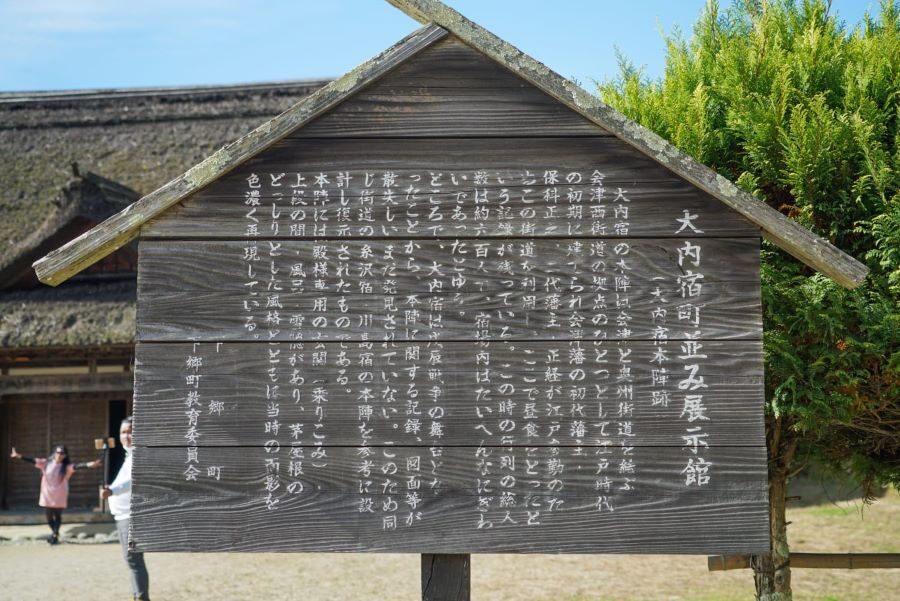 大内宿町並み展示館
(大内宿本陣跡)
大内宿の本陣は会津と奥州街道を結ぶ
会津西街道の拠点のひとつとして江戸時代
の初期に建てられ会津藩の初代藩主・
保科正之、二代藩主・正経が江戸参勤のた
めこの街道を利用し、ここで昼食をとったと
いう記録が残っている。この時の行列の総人
数は約六百人で、宿場内はたいへんなにぎわ
いであったとゆう。
ところで、大内宿は戊辰戦争の舞台となっ
たことから、本陣に関する記録、図面等が
散失しいまだ発見されていない。このため同
じ街道の糸沢宿、川島宿の本陣を参考に設
計し復元されたものである。
本陣には殿様専用の玄関(乗りこみ)
上段の間、風呂、雪隠があり、茅屋根の
どっしりとした風格とともに当時の面影を
色濃く再現している。
下郷町
下郷町教育委員会